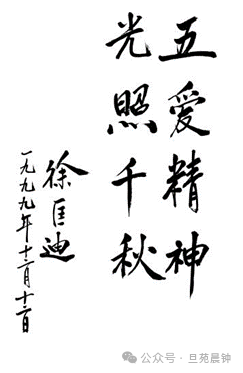 五爱精神
光照千秋
徐匡迪
一九九九年十二月十二日
公众号·旦苑晨钟